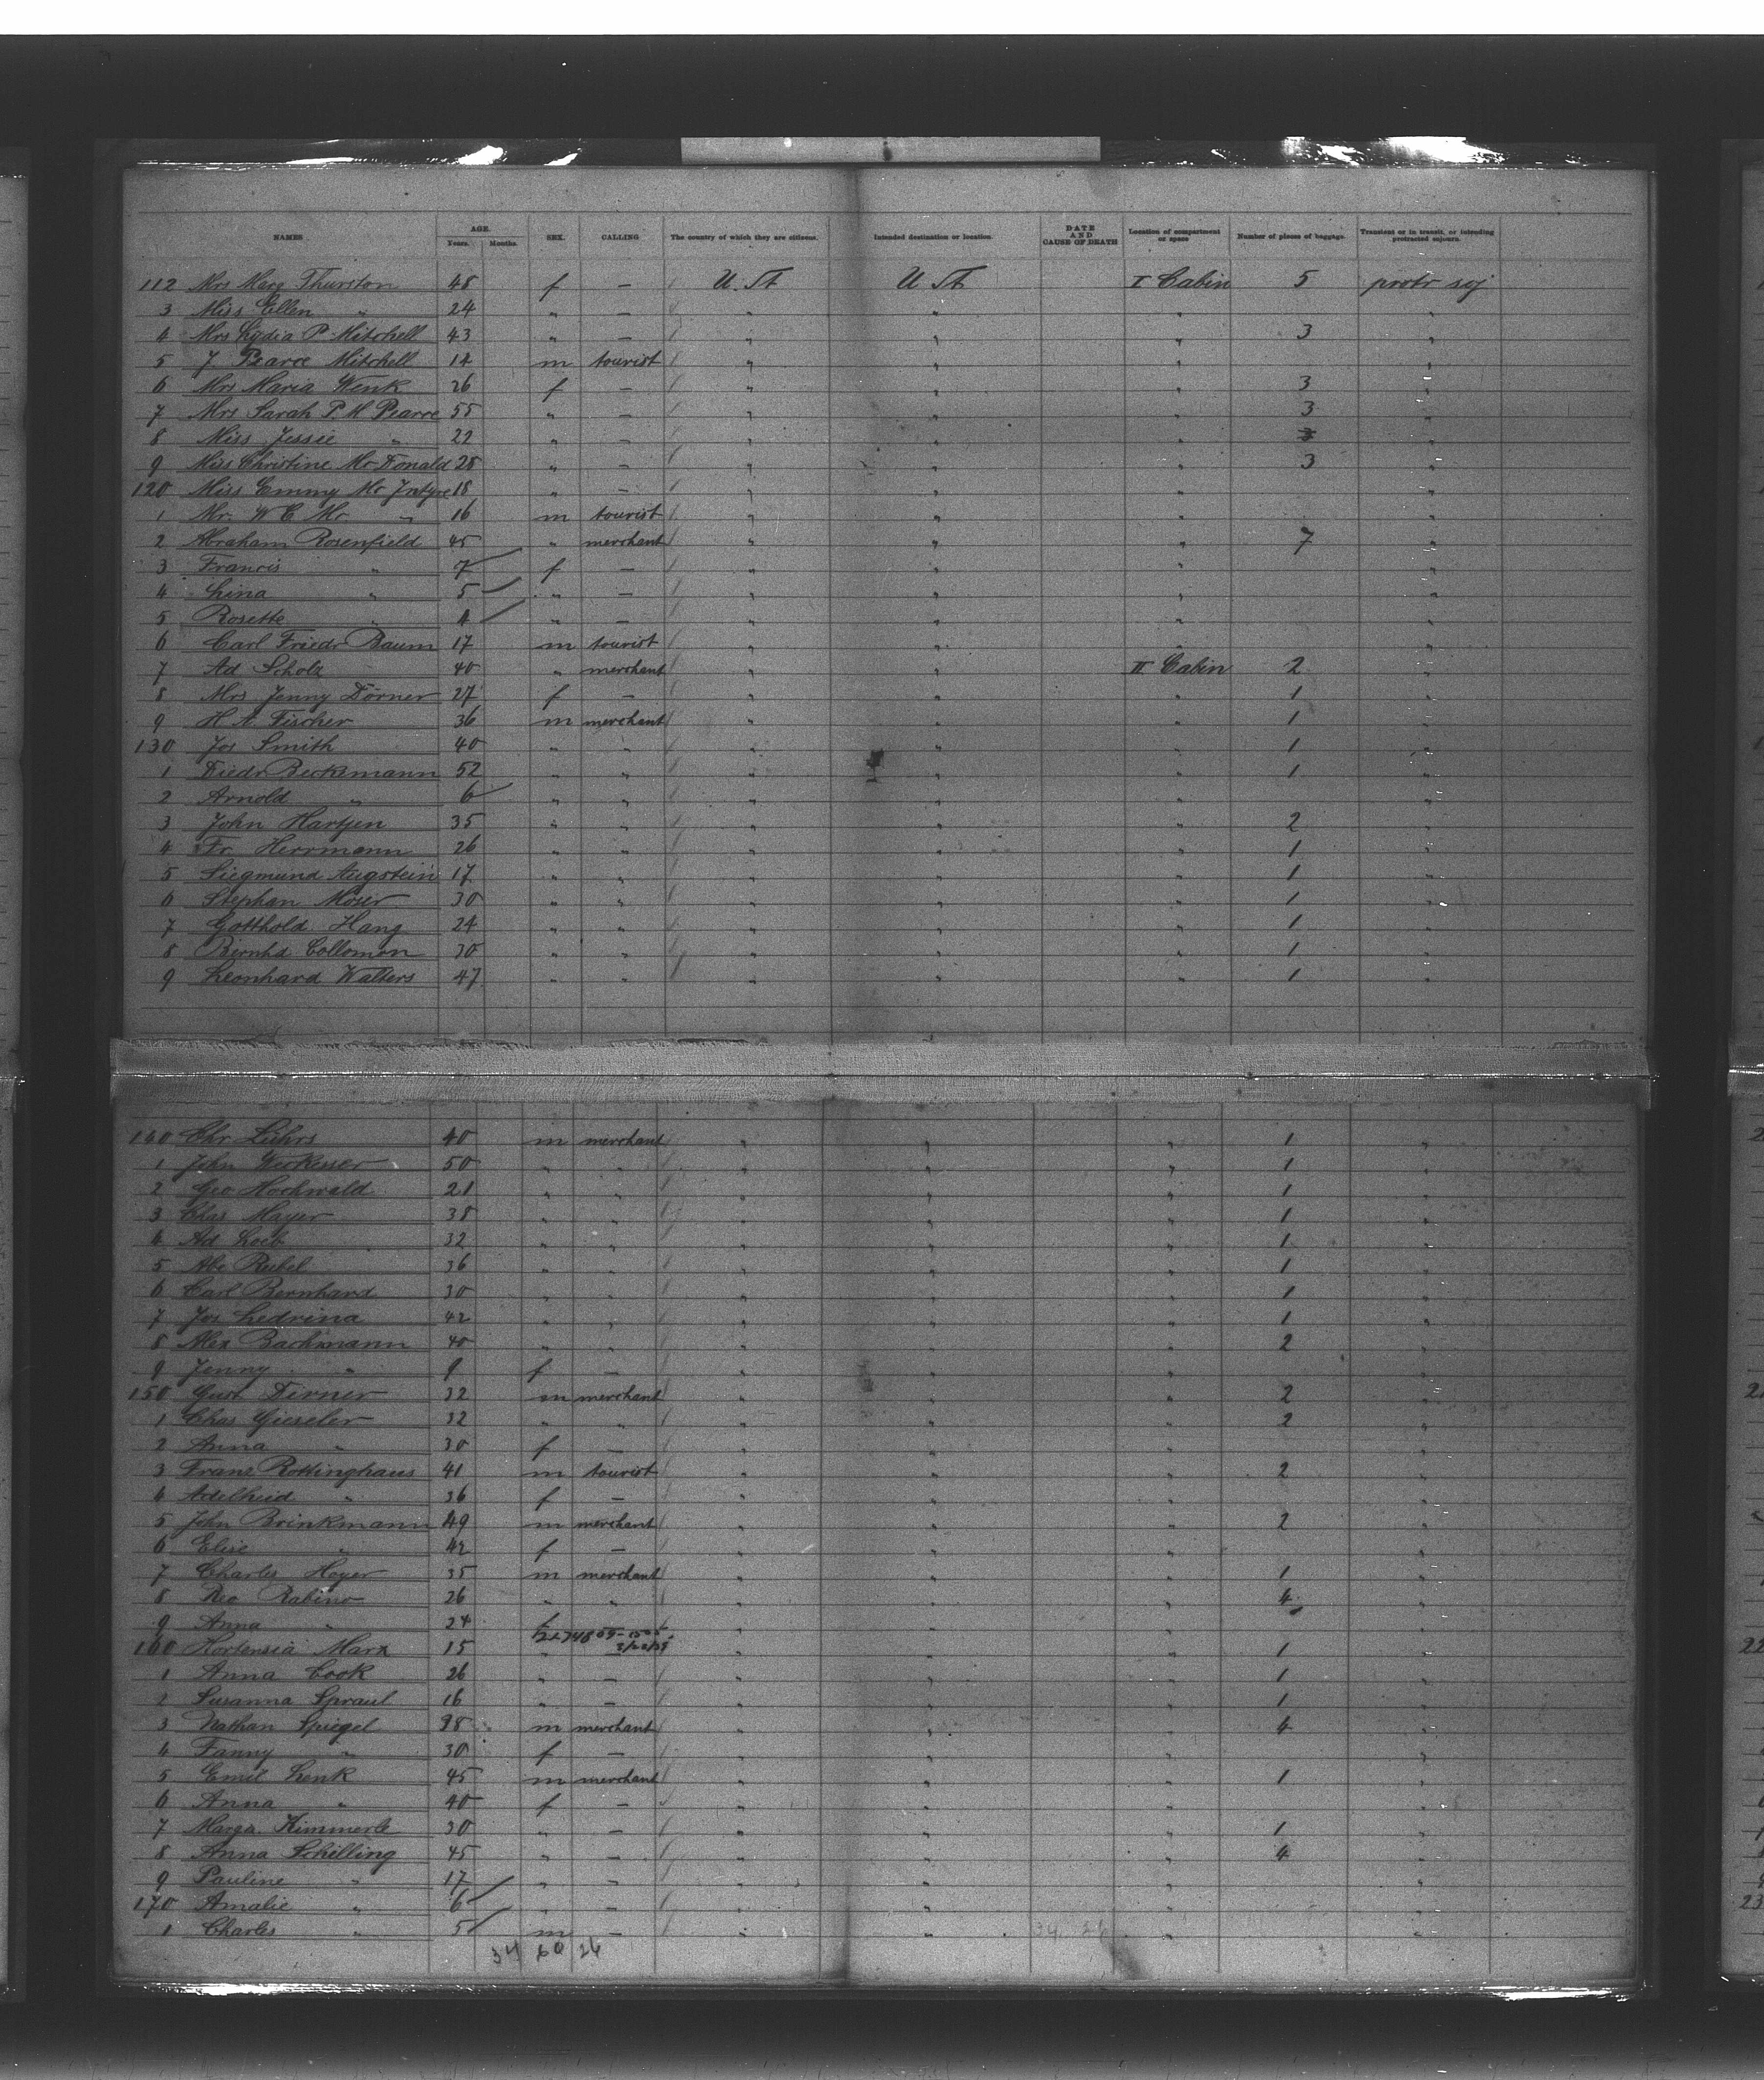 NAMES AGE. Years. Months. SEX. CALLING The country of which they are citizens. Intended destination or location. DATE AND CAUSE OF DEATH Location of compartment or space Number of pieces of baggage. Transient or in transit, or intending protracted sojourn.
112 Mrs Marg Thurston 48 f — U. St U St I Cabin 5 protr soj
3 Miss Ellen " 24 " — " " " "
4 Mrs Lydia P. Mitchell 43 " — " " " 3 "
5 J. Pearce Mitchell 14 m tourist " " " "
6 Mrs Maria Wenk 26 f — " " " 3 "
7 Mrs Sarah P. M Pearre 55 " — " " " 3 "
8 Miss Jessie " 22 " — " " " 3 "
9 Miss Christine Mc Donald 25 " — " " " 3 "
120 Miss Emmy Mc Intyre 18 " — " " " "
1 Mr. W C Mc " 16 m tourist " " " "
2 Abraham Rosenfield 45 " merchant " " " 7 "
3 Francis " 7 f — " " " "
4 Lina " 5 " — " " " "
5 Rosette " 4 " — " " " "
6 Carl Friedr Baum 17 m tourist " " " "
7 Ad Scholz 40 " merchant " " II Cabin 2 "
8 Mrs Jenny Dörner 27 f — " " " 1 "
9 H A. Fischer 36 m merchant " " " 1 "
130 Jos Smith 40 " " " " " 1 "
1 Diedr Beckmann 52 " " " " " 1 "
2 Arnold " 6 " " " " " "
3 John Hartjen 35 " " " " " 2 "
4 Fr. Herrmann 26 " " " " " 1 "
5 Siegmund Augstein 17 " " " " " 1 "
6 Stephan Moser 30 " " " " " 1 "
7 Gotthold Hang 24 " " " " " 1 "
8 Bernhd Collomon 30 " " " " " 1 "
9 Leonhard Walters 47 " " " " " 1 "
140 Chr Lührs 40 m merchant " " " 1 "
1 John 50 " " " " " 1 "
2 Geo Hochwald 21 " " " " " 1 "
3 Chas Mayer 38 " " " " " 1 "
4 Ad Loeb 32 " " " " " 1 "
5 Abe Rubel 36 " " " " " 1 "
6 Carl Bernhard 30 " " " " " 1 "
7 Jos Ledvina 42 " " " " " 1 "
8 Alex Bachmann 40 " " " " " 2 "
9 Jenny " 9 f — " " " "
150 Gust Dirner 32 m merchant " " " 2 "
1 Chas Gieseler 32 " " " " " 2 "
2 Anna " 30 f — " " " "
3 Franz Rottinghaus 41 m tourist " " " 2 "
4 Adelheid " 36 f — " " " "
5 John Brinkmann 49 m merchant " " " 2 "
6 Elise " 42 f — " " " "
7 Charles Hoyer 35 m merchant " " " 1 "
8 Reo Rabino 26 " " " " " 4 "
9 Anna " 24 f " " " "
160 Hortensia Marx 15 " — " " " 1 "
1 Anna Cook 26 " — " " " 1 "
2 Susanna Spraul 16 " — " " " 1 "
3 Nathan Spiegel 38 m merchant " " " 4 "
4 Fanny " 30 f — " " " "
5 Emil Lenk 45 m merchant " " " 1 "
6 Anna " 40 f — " " " "
7 Marga. Kimmerle 30 " — " " " 1 "
8 Anna Schilling 45 " — " " " 4 "
9 Pauline " 17 " — " " " "
170 Amalie " 6 " — " " " "
1 Charles " 5 m — " " " "
34 60 26